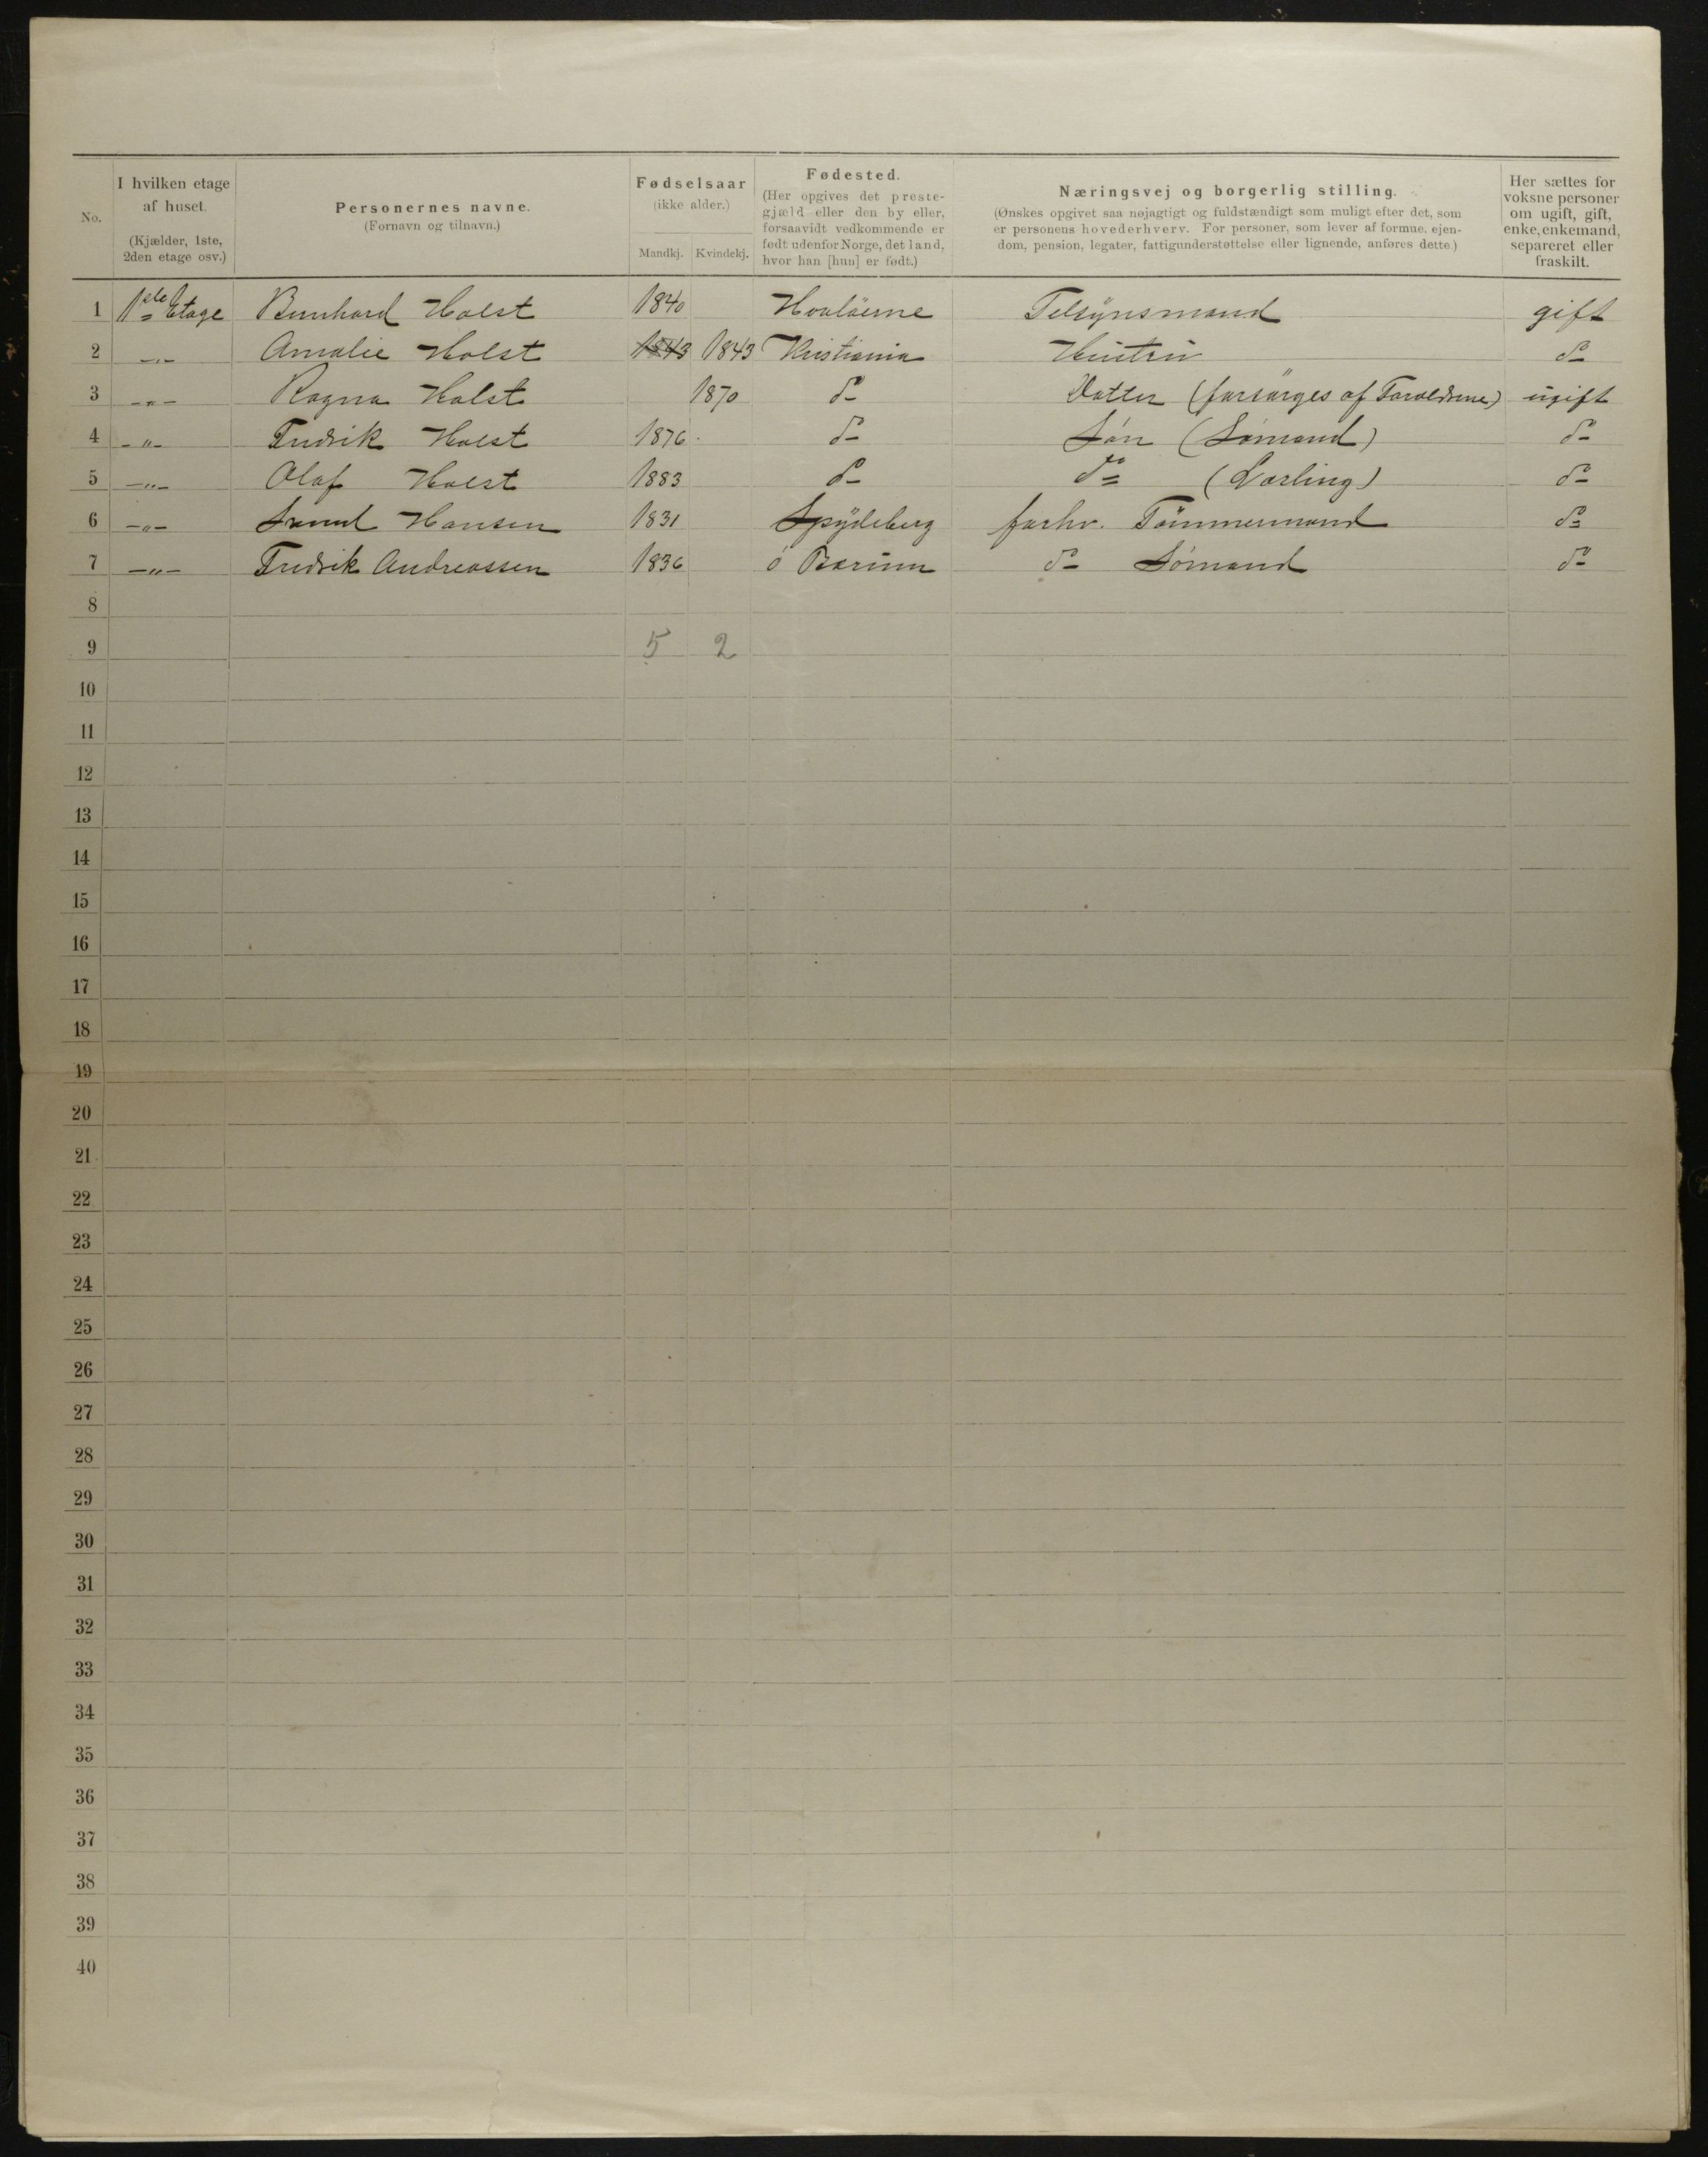 No.
I hvilken etage af huset.
(Kjælder, 1ste, 2den etage osv.)
Personernes navne.
(Fornavn og tilnavn.)
Fødselsaar
(ikke alder.)
Mandkj. Kvindekj.
Fødested.
(Her opgives det prestegjæld eller den by eller, forsaavidt vedkommende er født udenfor Norge, det land, hvor han [hun] er født.)
Næringsvej og borgerlig stilling.
(Ønskes opgivet saa nøjagtigt og fuldstændigt som muligt efter det, som er personens hovederhverv. For personer, som lever af formue, ejendom, pension, legater, fattigunderstøttelse eller lignende, anføres dette.)
Her sættes for voksne personer om ugift, gift, enke, enkemand, separeret eller fraskilt.
1 1ste Etage Bernhard Holst 1840 Hvaløerne Telsynsmand gift
2 -"- Amalie Holst 1843 1843 Kristiania Hustru do
3 -"- Ragna Holst 1870 do Datter (forsørges af Forældrene) ugift
4 -"- Fredrik Holst 1876 do Søn (Sømand) do
5 -"- Olaf Holst 1883 do do (Lærling) do
6 -"- Hansen 1831 Spydeberg forhv. Tømmermand do
7 -"- Fredrik Andreassen 1836 Ø Bærum do Sømand do
8
9 5 2
10
11
12
13
14
15
16
17
18
19
20
21
22
23
24
25
26
27
28
29
30
31
32
33
34
35
36
37
38
39
40